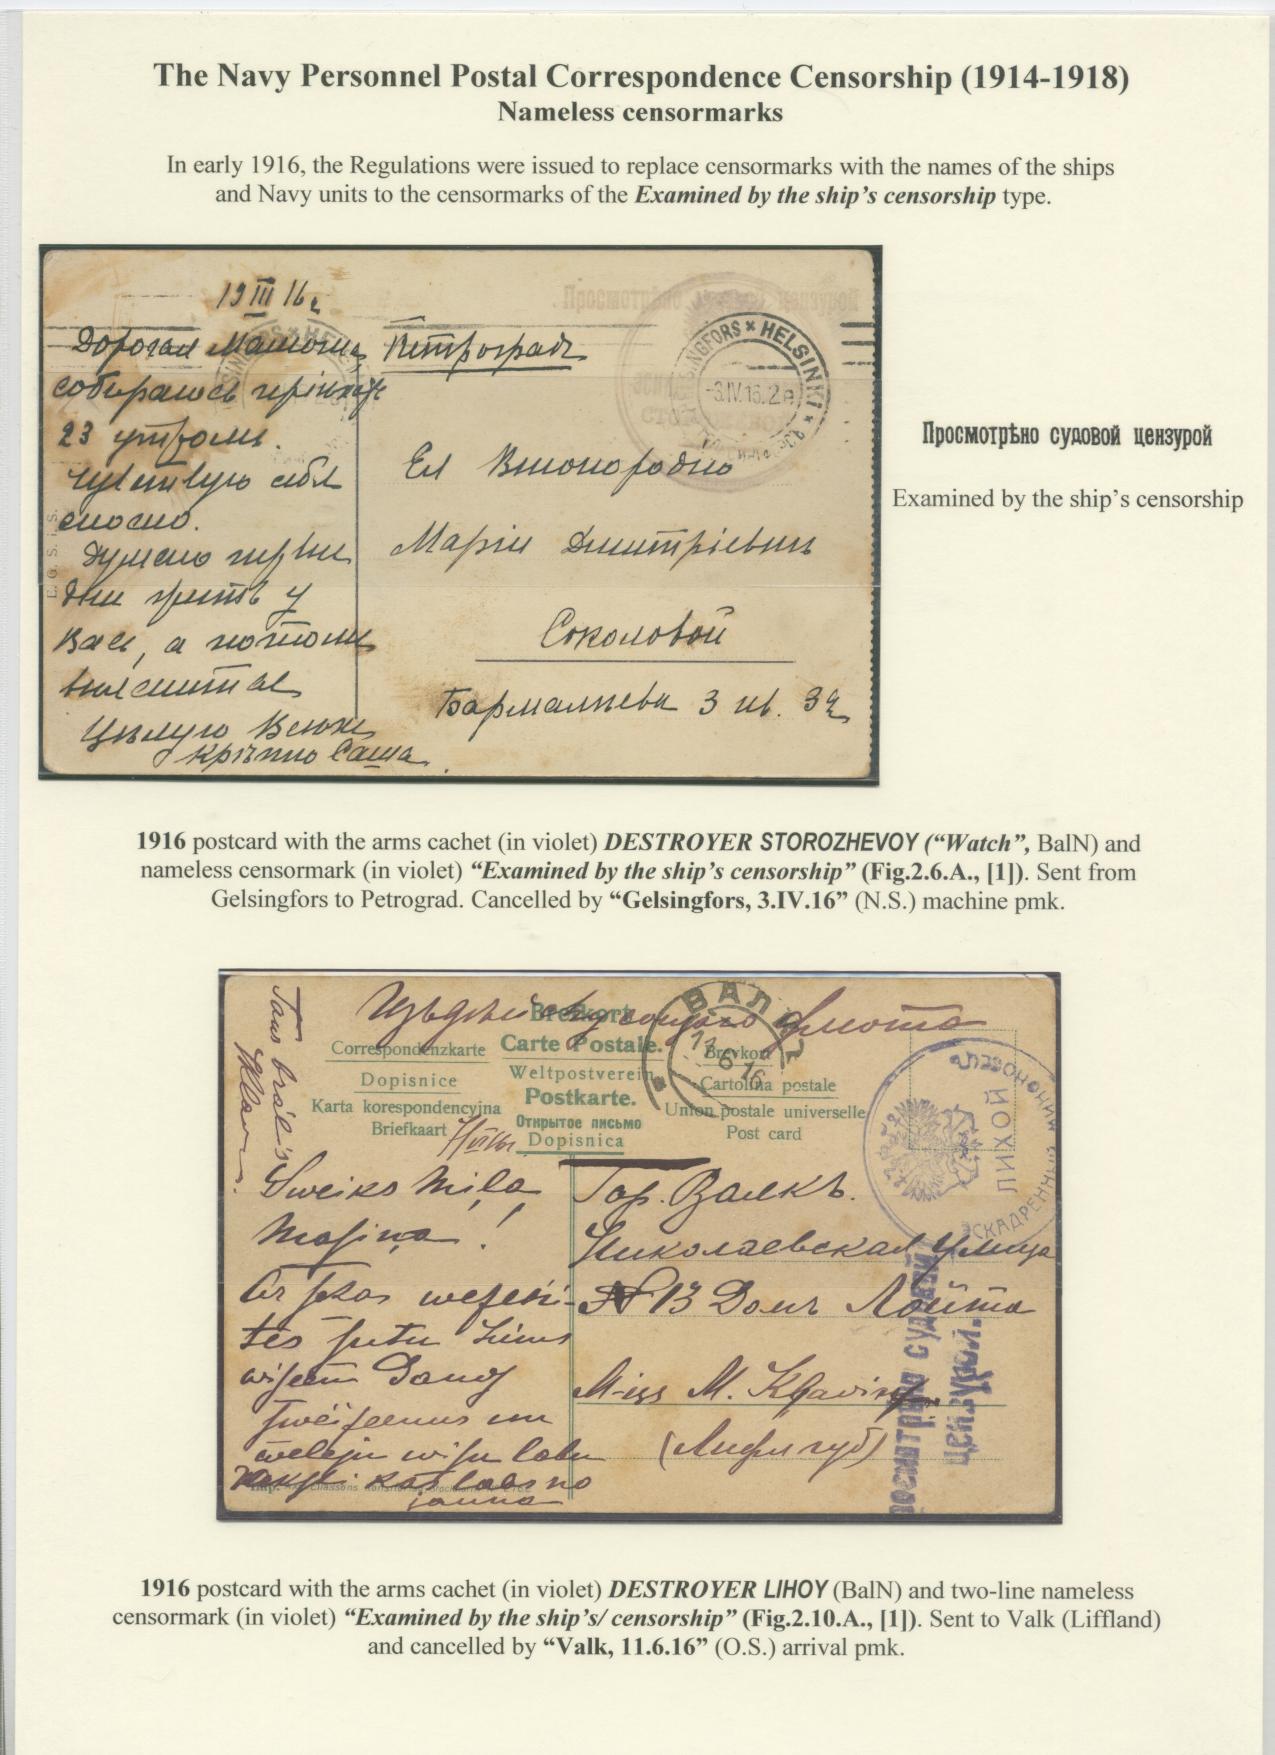 The Navy Personnel Postal Correspondence Censorship (1914-1918)
Nameless censormarks
In early 1916, the Regulations were issued to replace censormarks with the names of the ships
and Navy units to the censormarks of the Examined by the ship's censorship type.
19 III 16 г
Дорогая Мамочка
собираюсь
23 утромъ.
Чувствую себя
сносно.
Думаю
дни у
Васъ, а потомъ
Цѣлую Всѣхъ
крѣпко Саша.
Петроградъ
HELSINGFORS × HELSINKI ×
-3.IV.16.2
Ея
Маріи Дмитріевнѣ
Соколовой
Бармалѣева 3 кв. 32
E. G. S. i. S.
Просмотрѣно судовой цензурой
Examined by the ship's censorship
1916 postcard with the arms cachet (in violet) DESTROYER STOROZHEVOY ("Watch", BalN) and
nameless censormark (in violet) "Examined by the ship's censorship" (Fig.2.6.A., [1]). Sent from
Gelsingfors to Petrograd. Cancelled by "Gelsingfors, 3.IV.16" (N.S.) machine pmk.
Изъ Дѣйствующаго флота
ВАЛКЪ
11
6 16
Brefkort
Correspondenzkarte Carte Postale. Brevkort
Dopisnice Weltpostverein Cartolina postale
Karta korespondencyjna Postkarte. Union postale universelle
Briefkaart Открытое письмо Post card
Dopisnica
ЭСКАДРЕННЫЙ МИНОНОСЕЦЪ
ЛИХОЙ
Taws brāl's
Sweiks Mīļa
Masiņa!
Гор. Валкъ.
Николаевская Улица
№ 13 Домъ Лойта
Miss M. Kļaviņ
(Лифл губ)
Daudz
un
wisu labu
kas labs no
jauna
просмотрѣно судовой
цензурой.
1916 postcard with the arms cachet (in violet) DESTROYER LIHOY (BalN) and two-line nameless
censormark (in violet) "Examined by the ship's/ censorship" (Fig.2.10.A., [1]). Sent to Valk (Liffland)
and cancelled by "Valk, 11.6.16" (O.S.) arrival pmk.